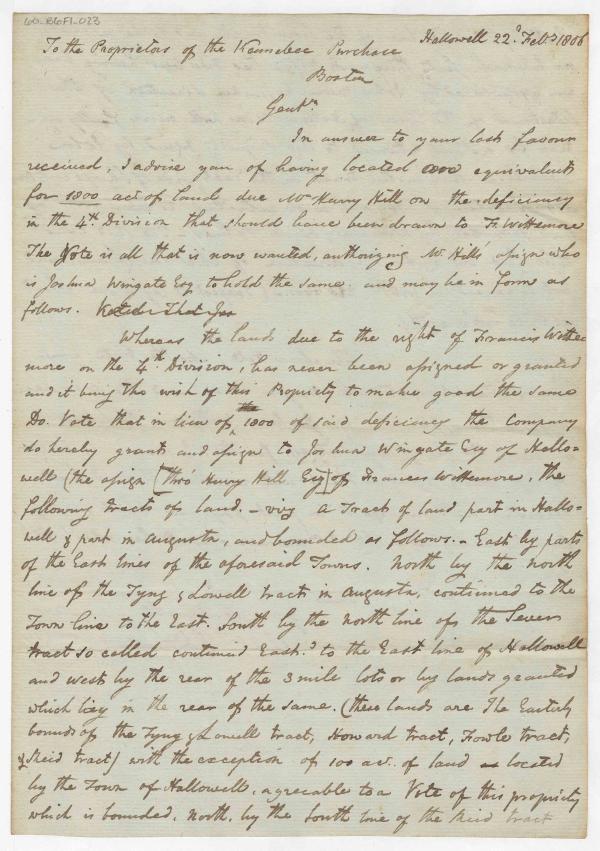 60_B6F1_023
Hallowell 22d Feby 1806
To the Proprietors of the Kennebec Purchase
Boston
Gentn
In answer to your last favour
received, I advise you of having located equivalents
for 1800 acs of land due Mr Henry Hill on the deficiency
in the 4th Division that should have been drawn to Fs Wittemore
The Vote is all that is now wanted, authorizing Mr Hills' assign who
is Joshua Wingate Esq to hold the same. and may be in form as
follows. Voted That Jos
Whereas the lands due to the right of Francis Witte=
more on the 4th Division, has never been assigned or granted
and it being the wish of this Propriety to make good the same
Do. Vote that in lieu of the 1800 of said deficiency the Company
do hereby grant and assign to Joshua Wingate Esq of Hallo=
well (the assign [thro' Henry Hill Esq] of Francis Wittemore, the
following tracts of land. – viz a Tract of land part in Hallo=
well & part in Augusta, and bounded as follows. – East by parts
of the East lines of the aforesaid Towns. North by the north
line of the Tyng & Lowell tracts in Augusta, continued to the
Town line to the East. South by the north line of the Seven
tract so called continued Eastd to the East line of Hallowell
and west by the rear of the 3 mile lots or by lands granted
which lay in the rear of the same. (these lands are The Easterly
bounds of the Tyng & Lowell tract, Howard tract, Fowle tract,
& Reid tract) with the exception of 100 acs. of land located
by the Town of Hallowell, agreeable to a Vote of this propriety
which is bounded. North. by the South line of the Reid tract